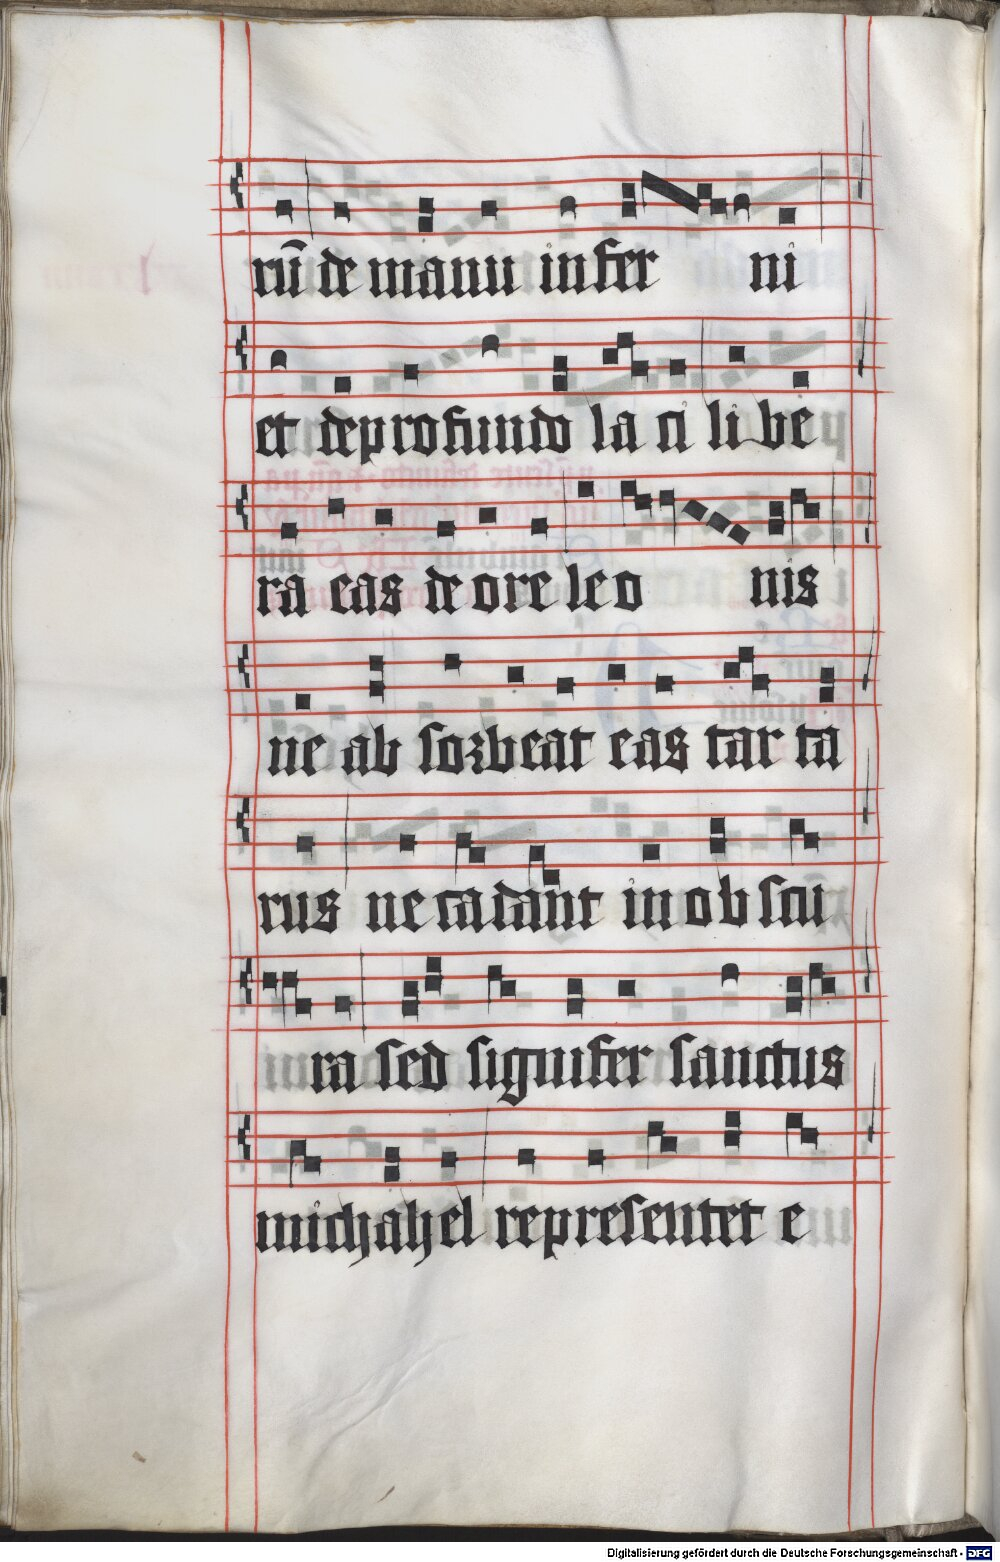 rū de manu infer ni
et deprofundo la ci li be
ra eas de ore leo nis
ne ab sorbeat eas tar ta
rus ne cadant in ob scu
ra sed signifer sanctus
michahel representet e
Digitalisierung gefördert durch die Deutsche Forschungsgemeinschaft - DFG